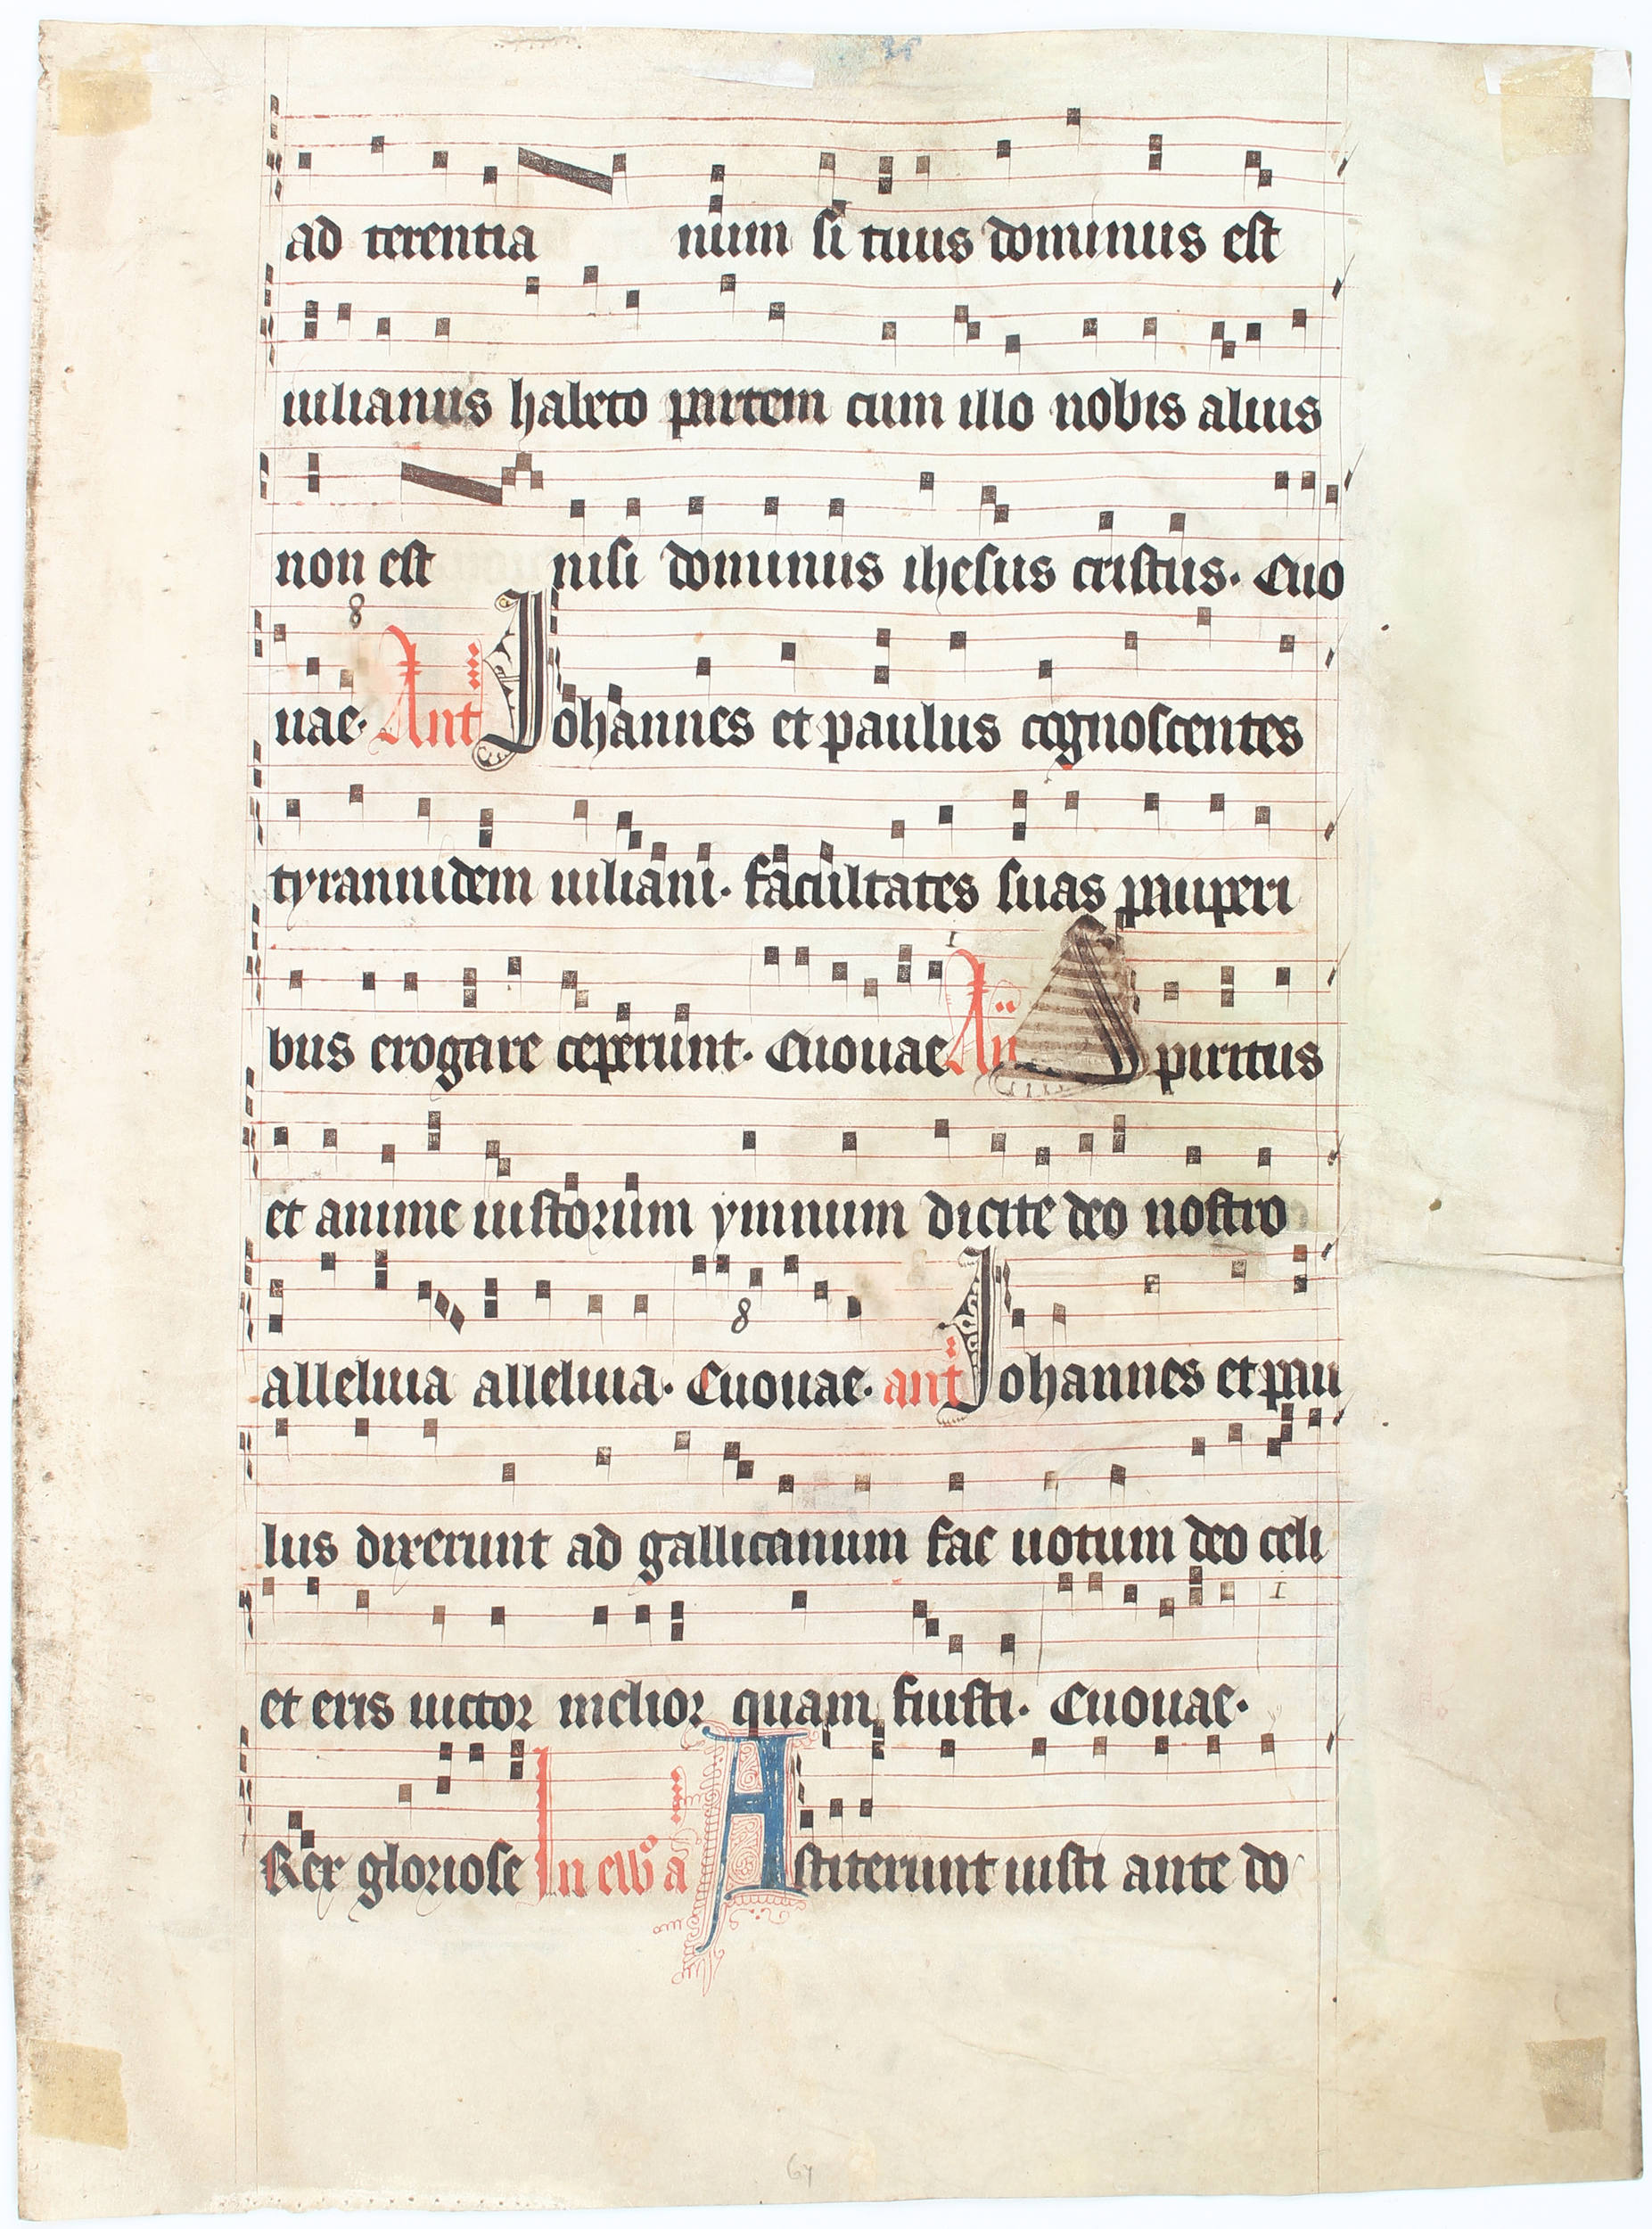 ad terentia num si tuus dominus est
iulianus habeto partem cum illo nobis alius
non est nisi dominus ihesus cristus. Euo
8
uae. Ant Johannes et paulus cognoscentes
tyrannidem iuliani. facultates suas pauperi
I
bus erogare ceperunt. Euouae An Spiritus
et anime iustorum ymnum dicite deo nostro
8
alleluia alleluia. Euouae. ant Johannes et pau
lus dixerunt ad gallicanum fac uotum deo celi
I
et eris uictor melior quam fuisti. Euouae.
Rex gloriose In euo a Astiterunt iusti ante do
64